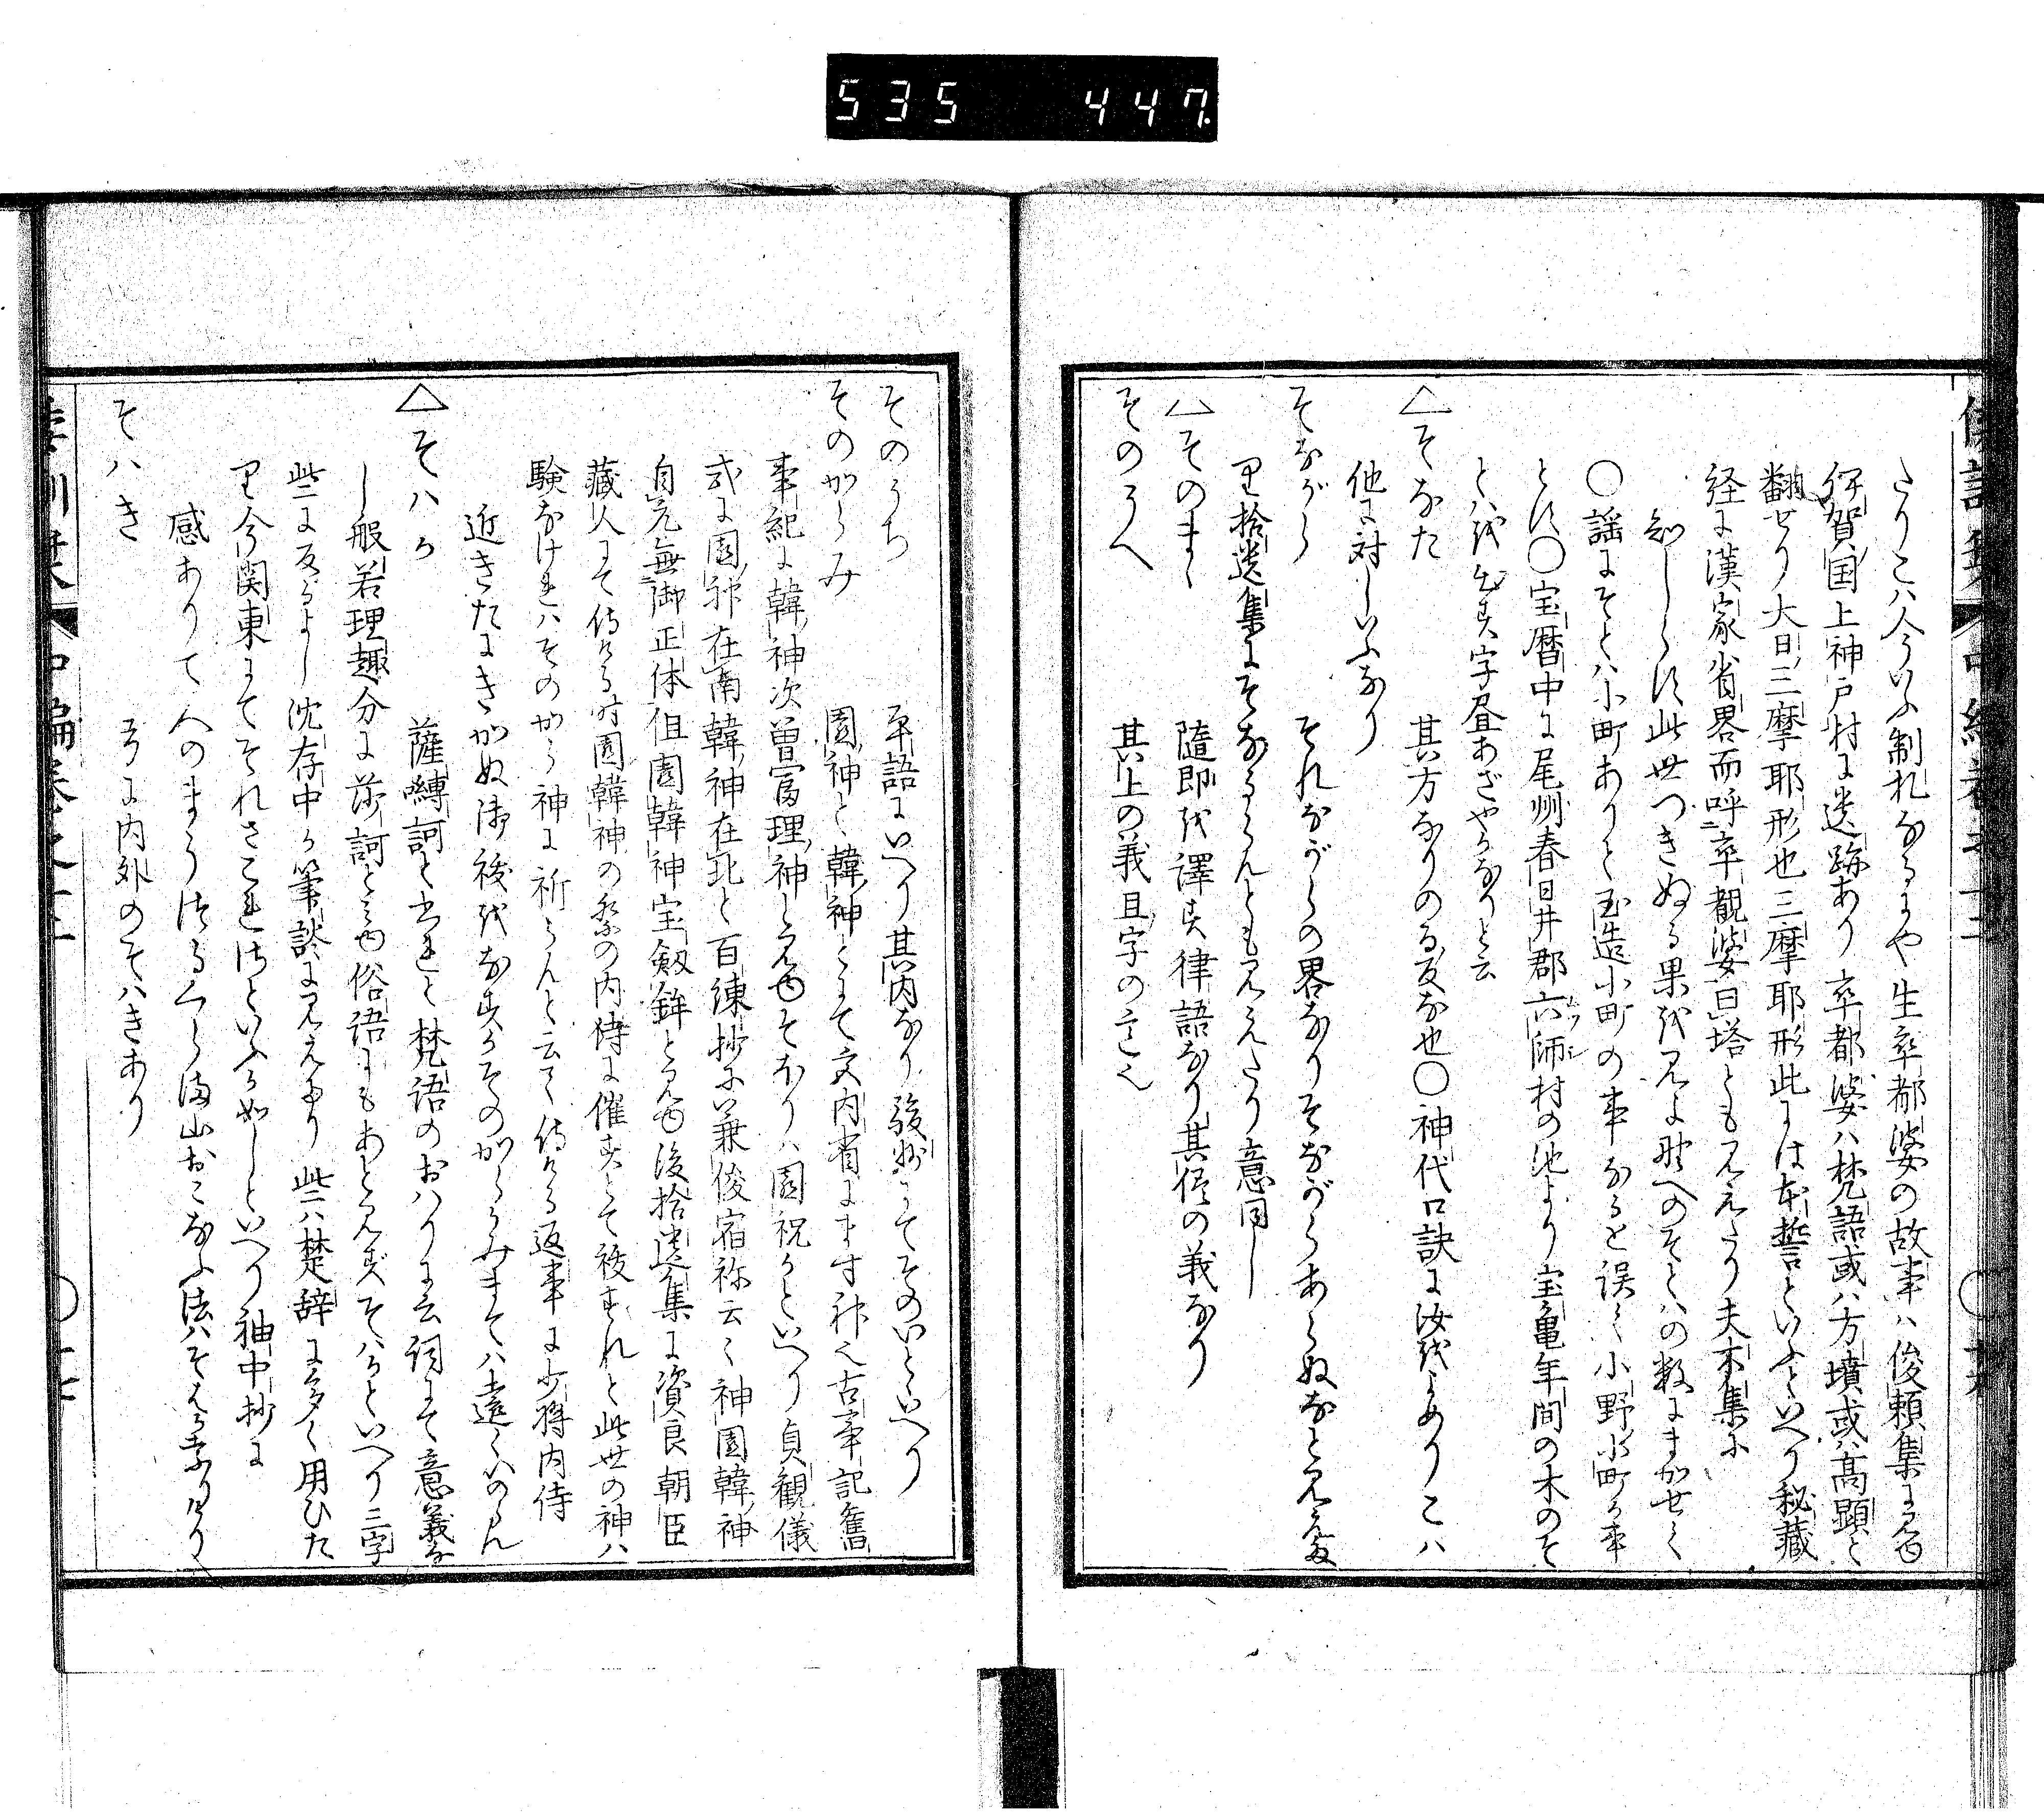 535 447.
たりこハ人うハふ制れなるにや生卒都婆の故事ハ俊頼集に見ゆ
伊賀国上神戸村に遺跡あり卒都婆ハ梵語或ハ方墳或ハ高顕と
翻せり大日三摩耶形也三摩耶形此には本誓といふといへり秘藏
経に漢家省畧而呼卒覩婆曰塔とも見えたり夫木集に
知しらす此世つきぬる果を見よ野へのそとハの数にまかせて
〇謡にそとハ小町ありと玉造小町の事なると誤て小野小町の事
とす〇宝暦中に尾州春日井郡六師村の池より宝亀年間の木のそ
とハを出す字昼あざやかなりと云
△そなた 其方なりのる反な也〇神代口訣に汝をよめりこハ
他に対しいふなり
そながら それながらの畧なりそながらあらぬなと見えた
り拾遺集にそなるらんとも見えたり意同し
△そのまゝ 隨即を譯す律語なり其儘の義なり
そのうへ 其上の義且字の意也
そのうち 平語にいへり其内なり駿州にてそのいといへり
そのからみ 園神と韓神とにて文内省にます神也古事記舊
事紀に韓神次曽富理神と見ゆそほりハ園祝かといへり貞観儀
式に園神在南韓神在北と百練抄に兼俊宿祢云々神園韓神
自元無御正体但園韓神宝剱鉾と見ゆ後拾遺集に資良朝臣
藏人にて侍ける時園韓神の祭の内侍に催すとて祓すれと此世の神ハ
験なけれハそのから神に祈らんと云て侍ける返事に少将内侍
近きたにきかぬ御祓をなすかそのからかみまてハ遠くいのらん
△そハか 薩嚩訶と書れと梵語のおハりに云詞にて意義な
し般若理趣分に莎訶とミゆ俗語にもあと見すそハかといへり三字
此に反るよし沈存中か筆談に見えたり此ハ楚辞に多く用ひた
り今関東にてそれさこれさといふか如しといへり袖中抄に
感ありて人のまうするくらま山おこなふ法ハそはか業けり
そハき 弓に内外のそハきあり